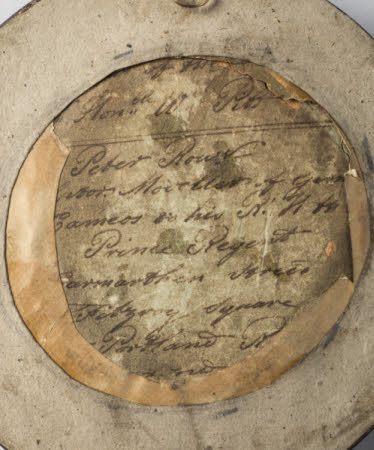 of the
Hon.ble Wm Pitt
Peter Rouw
Modeller of Gems
Cameos to his R. H. the
Prince Regent
Carmarthen Street
Fitzroy Square
Portland R